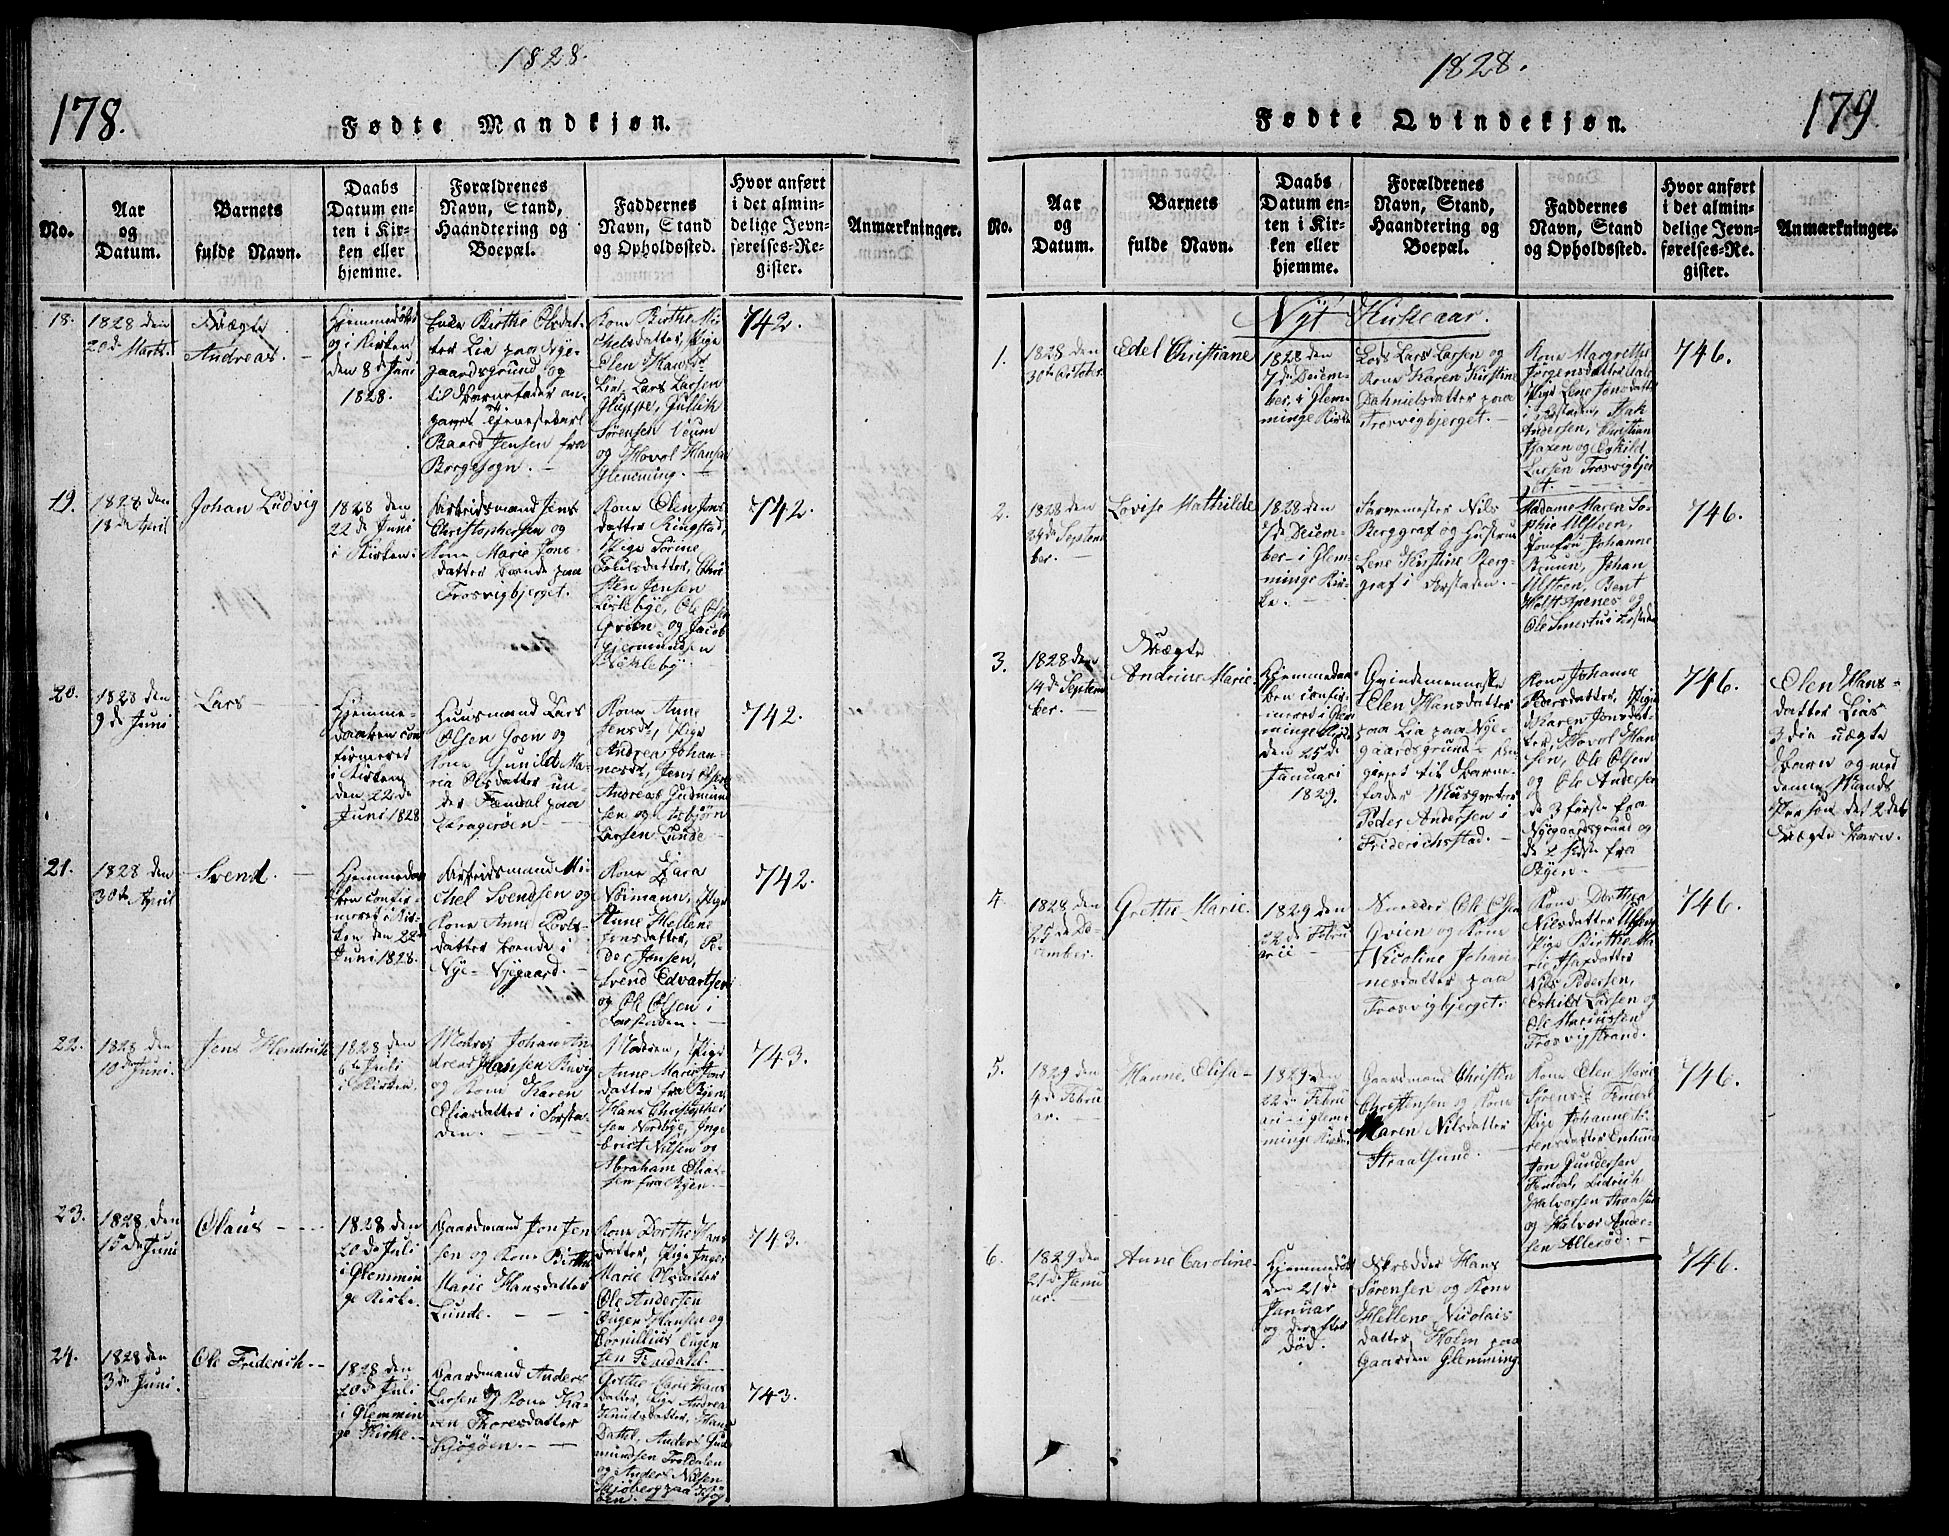 1828.
178.
Fødte Mandkjøn.
No.
Aar
og
Datum.
Barnets
fulde Navn.
Daabs
Datum en-
ten i Kir-
ken eller
hjemme.
Forældrenes
Navn, Stand,
Haandtering og
Boepæl.
Faddernes
Navn, Stand
og Opholdssted.
Hvor anført
i det almin-
delige Jevn-
førelses-Re-
gister.
Anmærkninger.
18.
1828 den
20de Marts.
Uægte
Andreas.
og i Kirken
den 8de Juni
1828.
Birthe Olsdat-
ter Lia paa Nye-
gaardsgrund og
til Barnefader an-
Baard Jensen fra
Borgesogn.
Kone Birthe Mi-
chelsdatter, Pige
Elen Hansd.
Lia, Lars Larsen
Gluppe, Gullik
Sørensen Veum
og Hovel Hansen
Glemming.
742.
19.
1828 den
18de April
Johan Ludvig
1828 den
22de Juni
i Kirken
Jens
Christophersen og
Kone Marie Jons-
datter boende paa
Trosvigbjerget.
Kone Elen Jons
datter Ringstad,
Pige Sørine
Jensen
Lislebye, Ole Olsen
Qvien og Jacob
Gjermundsen
742.
20.
1828 den
9de Juni
Lars
Hjemme-
daaben con-
firmeret
i Kirken
den 22de
Juni 1828
Huusmand Lars
Olsen og
Kone Gunild Ma-
ria Olsdatter un-
der Femdal paa
Kragerøen
Kone Anne
Jensd., Pige
Andrea Johan-
nesd., Jens Olsen
Andreas Gudmund
sen og Asbjørn
Larsen Lunde
742.
21.
1828 den
30de April
Svend.
Hjemmedaa
ben confir-
meret i Kir-
ken den 22de
Juni 1828.
Mi-
chel Svendsen og
Kone Anne Povels-
datter boende i
Nye-Nygaard.
Kone Zara
Noimann, Pige
Anne Hellene
Jensdatter, Pe-
der Jonsen,
Svend Edvartsen
og Ole Olsen i
Forstaden.
742.
22.
1828 den
10de Juni.
Jens Hendrich
1828 den
6te Juli
i Kirken.
Matros Johan An-
dreas Hansen
og Kone Karen
Eliasdatter i Forsta-
den.
Modren, Pige
Anne Marie Jons
datter fra Øyen,
Hans Christopher
sen Nordbye, Inge
brict Nilsen og
Abraham Elia-
sen fra Øyen.
743.
23.
1828 den
15de Juni
Olaus
1828 den
20de Juli
i Glemmin
ge Kirke.
Gaardmand Jon Jen
sen og Kone Birthe
Marie Hansdatter
Lunde.
Kone Dorthe Hans
datter, Pige Inger
Marie Olsdatter
Ole Andersen
Eugen Hansen og
Cornillius Eugen
sen Femdahl.
743.
24.
1828 den
3de Juni.
Ole Friderich.
1828 den
20de Juli
i Glemmin
ge Kirke.
Gaardmand Anders
Larsen og Kone Ka-
ren Thoresdatter
Kjøgøen.
Grethe Marie Hans
datter, Pige Andrea
Knudsdatter, Hans
Dattel, Anders Gud
mundsen Troldalen
og Anders Nilsen
743.
1828.
179
Fødte Qvindekjøn.
No.
Aar
og
Datum.
Barnets
fulde Navn.
Daabs
Datum en-
ten i Kir-
ken eller
hjemme.
Forældrenes
Navn, Stand,
Haandtering og
Boepæl.
Faddernes
Navn, Stand
og Opholdssted.
Hvor anført
i det almin-
delige Jevn-
førelses-Re-
gister.
Anmærkninger.
Nyt Kirkeaar.
1.
1828 den
30te October
Edel Christiane
1828 den
7de Decem-
ber i Glem-
minge Kirke
Lods Lars Larsen og
Kone Karen Kirstine
Dahnielsdatter paa
Trosvigbjerget.
Kone Margrethe
Jørgensdatter
Pige Lene Jonsdatter
i Forstaden, Isak
Andersen, Christian
Isaxen og Eskild
Larsen Trosvigbjer
get.
746.
2.
1828 den
24de Septem
ber.
Lovise Mathilde
1828 den
7de Decem-
ber i Glem-
minge Kir-
ke.
Farvemester Nils
Berggraf og Hustrue
Lene Kirstine Berg-
graf i Forstaden.
Madame Maren So-
phie Ulsteen,
Jomfru Johanne
Bruun, Johan
Ulsteen, Bent
Holst Apenes og
Ole Smertu i Forstaden
746.
3.
1828 den
14de Septem
ber.
Uægte
Andrine Marie.
Hjemmedaa
ben confir-
meret i Glem
minge Kirke
den 25de
Januari
1829.
Qvindemenneske
Elen Hansdatter
paa Lia paa Nye-
gaardsgrund
givet til Barne-
fader Musqveter
Peder Andersen i
Friderichsstad.
Kone Johanne
Larsdatter, Pige
Karen Jonsdat-
ter, Hovel Han-
sen, Ole Olsen
og Ole Andersen
de 3 første fra
Nygaardsgrund og
de 2 sidste fra
Øyen.
746.
Elen Hans-
datter Lias
3die uægte
Barn og med
denne Mands
Person det 2det
uægte Barn.
4.
1828 den
25de De-
cember.
Grethe Marie.
1829 den
22de Febru
arii
Snedker Ole Olsen
Qvien og Kone
Nicoline Johan-
nesdatter paa
Trosvigbjerget.
Kone Dorthea
Nilsdatter
Pige Birthe Ma-
rie Isaxdatter
Nils Pedersen,
Eskild Larsen og
Ole Mariussen
Trosvigstrand.
746.
5.
1829 den
4de Febru
ar.
Hanne Elisa-
1829 den
22de Febru
ari i Glem-
minge Kirke
Gaardmand Christen
Christensen og Kone
Maren Nilsdatter
Straalsund.
Kone Elen Marie
Pige Johanne
Jon Gundersen
Femdal, Didrich
Halvorsen Straalsund
og Halvor Ander-
sen Allerød.
746.
6.
1829 den
21de Janu
ar.
Anne Caroline
Hjemmedøbt
den 21de
Januar
og derefter
Død.
Skrædder Hans
Sørensen og Kone
Hellene Nicolais
datter, Holm paa
Gaarden Glemming.
746.